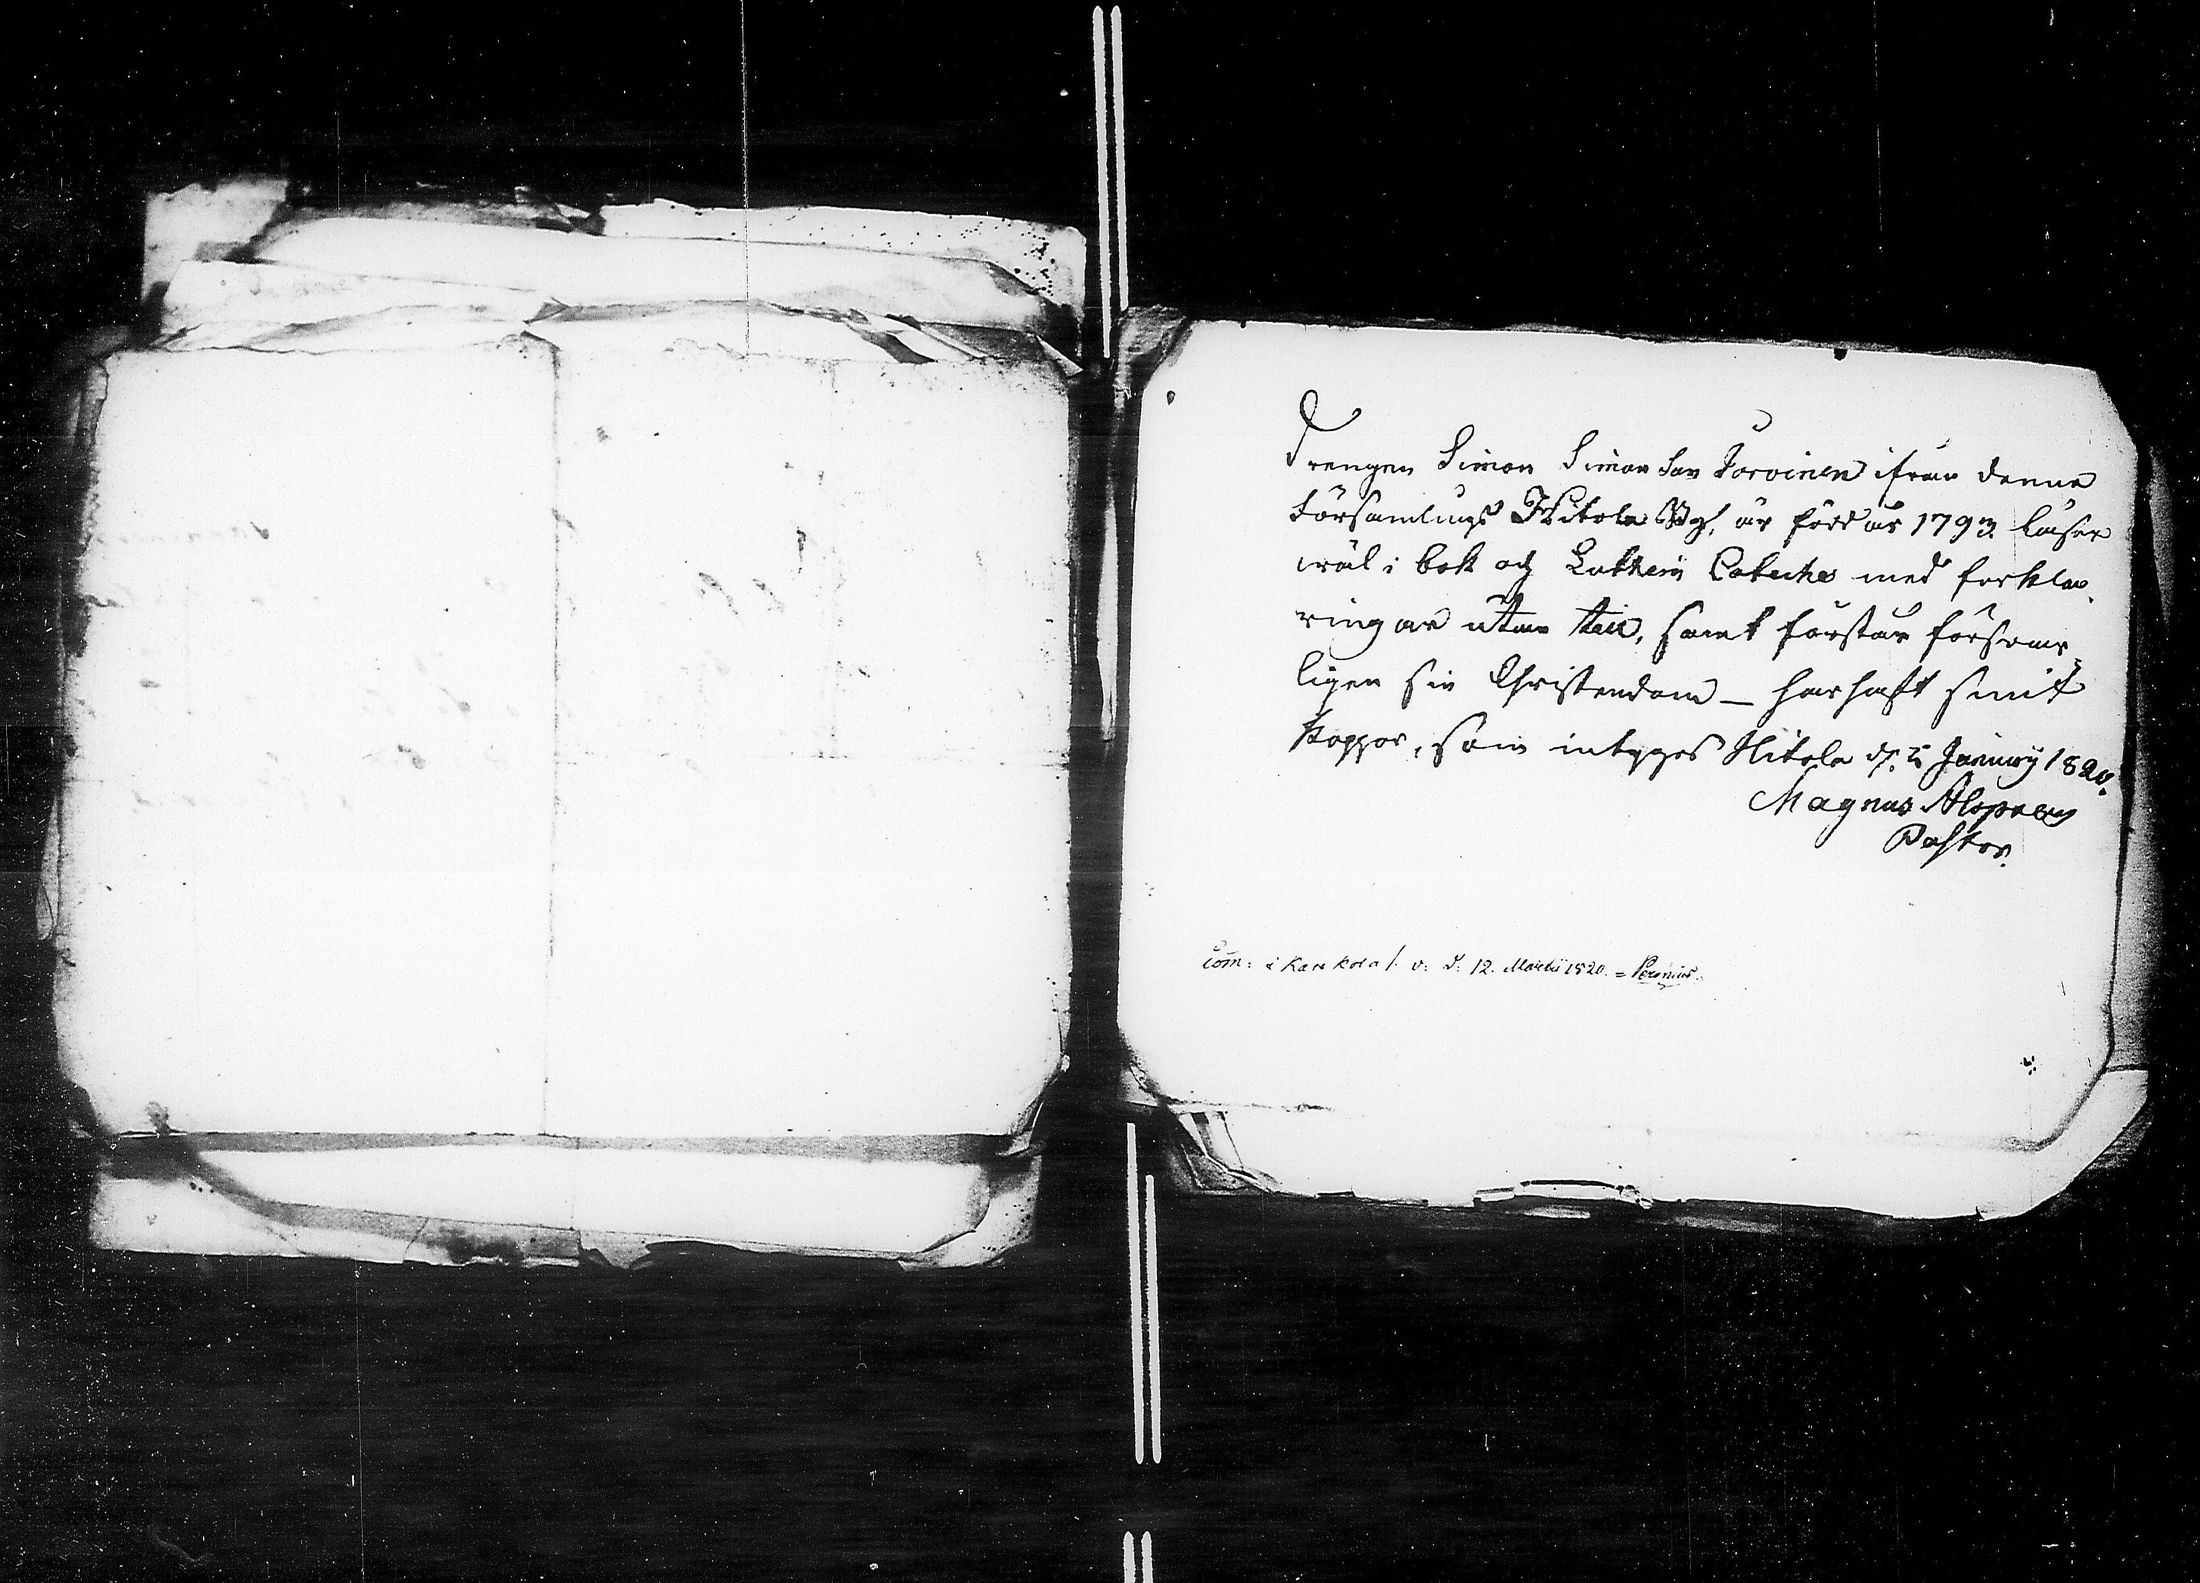 Drengen Simon Simonson Torvinen ifrån denne
Församlings Hitola By, är född år 1793. läser
wäl i bok och Lutheri Cateches med forkla-
ringar utan till, samt förstår försvar-
ligen sin Christendom – har haft smit
koppor, som intygas Hitola d. 2 January 1820.
Magnus Alopæus
Pastor.
Com: i Kaukola v. d. 12. Martii 1820. =